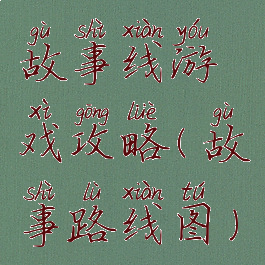 gù shì xiàn yóu
故事线游
xì gōng lüè gù
戏攻略(故
shì lù xiàn tú
事路线图)